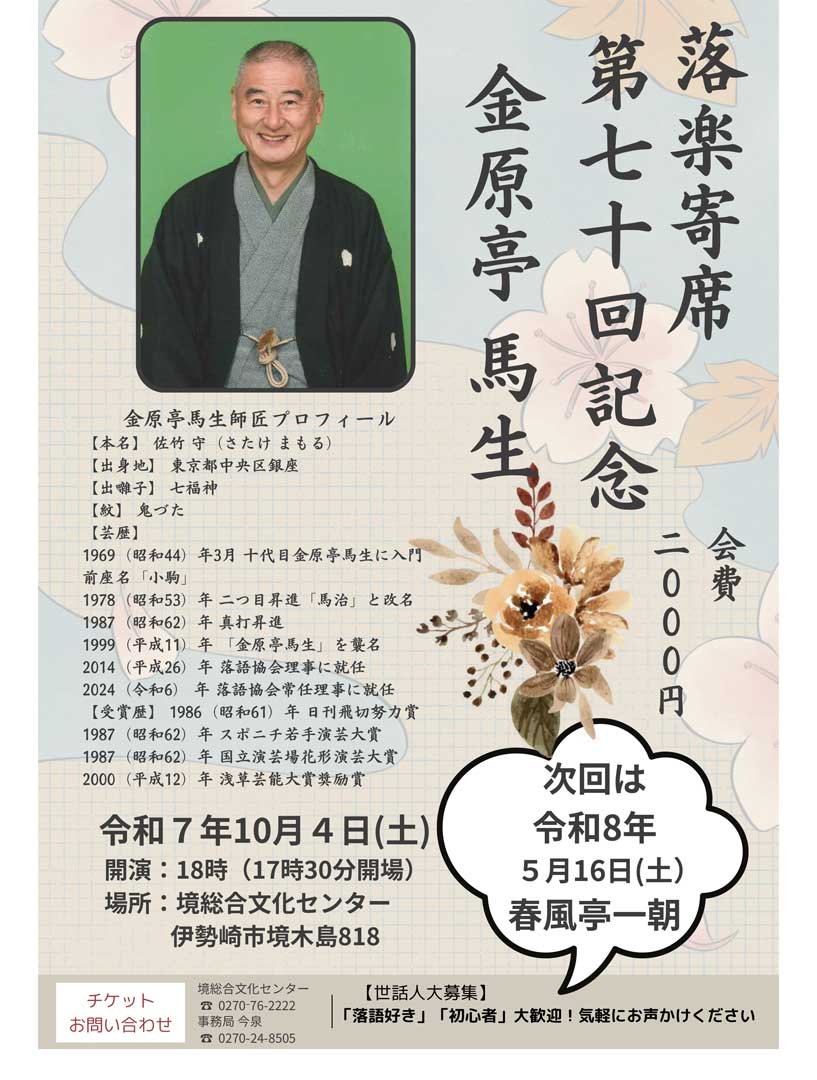 落楽寄席
第七十回記念
金原亭 馬生
会費
二〇〇〇円
金原亭馬生師匠プロフィール
【本名】 佐竹 守（さたけ まもる）
【出身地】 東京都中央区銀座
【出囃子】 七福神
【紋】 鬼づた
【芸歴】
1969（昭和44）年3月 十代目金原亭馬生に入門
前座名「小駒」
1978（昭和53）年 二つ目昇進「馬治」と改名
1987（昭和62）年 真打昇進
1999（平成11）年 「金原亭馬生」を襲名
2014（平成26）年 落語協会理事に就任
2024（令和6） 年 落語協会常任理事に就任
【受賞歴】 1986（昭和61）年 日刊飛切努力賞
1987（昭和62）年 スポニチ若手演芸大賞
1987（昭和62）年 国立演芸場花形演芸大賞
2000（平成12）年 浅草芸能大賞奨励賞
令和７年10月４日(土)
開演：18時（17時30分開場）
場所：境総合文化センター
伊勢崎市境木島818
次回は
令和8年
５月16日(土）
春風亭一朝
チケット
お問い合わせ
境総合文化センター
☎ 0270-76-2222
事務局 今泉
☎ 0270-24-8505
【世話人大募集】
「落語好き」「初心者」大歓迎！気軽にお声かけください